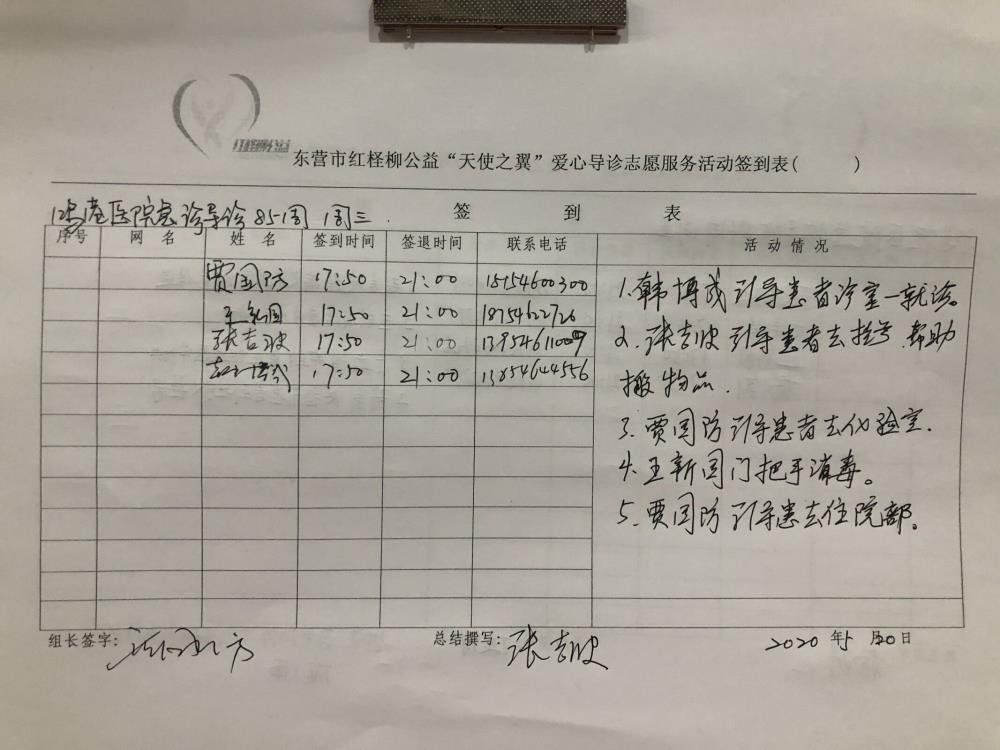 红柽柳公益
东营市红柽柳公益“天使之翼”爱心导诊志愿服务活动签到表( )
鸿港医院急诊导诊 85-1周 1周三.
签 到 表
序号 网 名 姓 名 签到时间 签退时间 联系电话 活 动 情 况
贾国防 17:50 21:00 15154600300
王新国 17:50 21:00 18754622726
张吉波 17:50 21:00 13954611009
17:50 21:00 13854644556
1.韩博成引导患者诊室一就诊。
2.张吉波引导患者去挂号.帮助
搬物品.
3.贾国防引导患者去化验室.
4.王新国门把手消毒。
5.贾国防引导患去住院部。
组长签字: 总结撰写: 张吉波 2020年5月20日